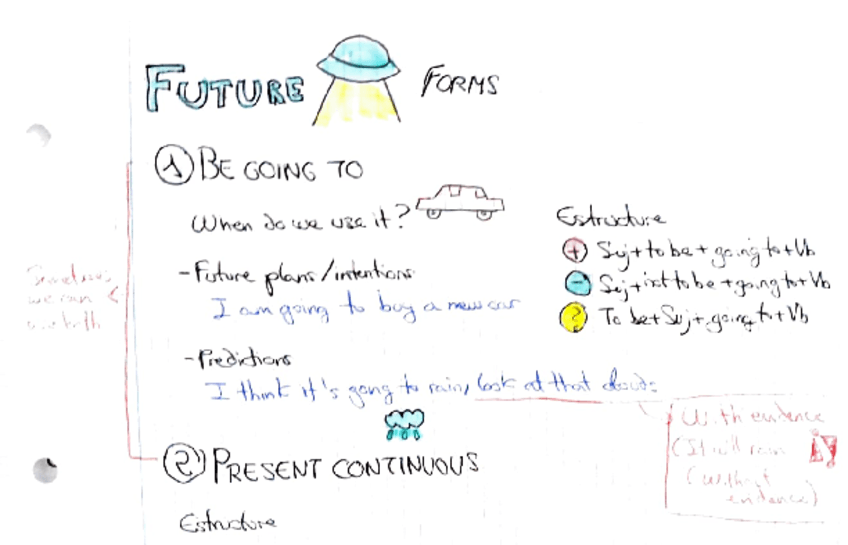 FUTURE FORMS
1 BE GOING TO
When do we use it?
-Future plans/intentions
I am going to buy a new car
-Predictions
I think it's going to rain, look at that clouds
Estructure
+ Suj+to be+going to+Vb
- Suj+ to be+going to+Vb
? To be+Suj+going to+Vb
Sometimes
we can
use both
With evidence
(It will rain
(without
evidence)
2 PRESENT CONTINUOUS
Estructure